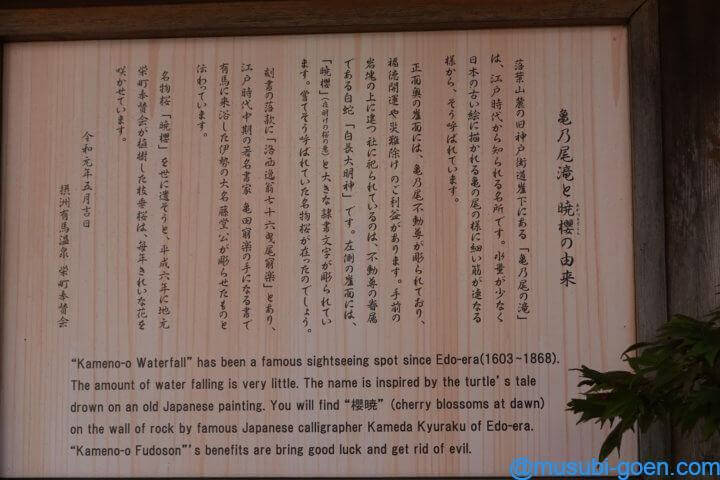 亀乃尾滝と暁櫻の由来
落葉山麓の旧神戸街道崖下にある「亀乃尾の滝」
は、江戸時代から知られる名所です。水量が少なく
日本の古い絵に描かれる亀の尾の様に細い筋が連なる
様から、そう呼ばれています。
正面奥の崖面には、亀乃尾不動尊が彫られており、
福徳開運や災難除けのご利益があります。手前の
岩塊の上に建つ社に祀られているのは、不動尊の眷属
である白蛇「白長大明神」です。左側の崖面には、
「暁櫻」(夜明けの桜の意)と大きな隷書文字が彫られてい
ます。嘗てそう呼ばれていた名物桜が在ったのでしょう。
刻書の落款に「洛西逸翁七十六曳尾窮楽」とあり、
江戸時代中期の著名書家 亀田窮楽の手になる書で
有馬に来浴した伊勢の大名藤堂公が彫らせたものと
伝わっています。
名物桜「暁櫻」を世に遺そうと、平成六年に地元
栄町奉賛会が植樹した枝垂桜は、毎年きれいな花を
咲かせています。
令和元年五月吉日
摂洲有馬温泉 栄町奉賛会
“Kameno-o Waterfall” has been a famous sightseeing spot since Edo-era(1603~1868).
The amount of water falling is very little. The name is inspired by the turtle’s tale
drown on an old Japanese painting. You will find “櫻暁” (cherry blossoms at dawn)
on the wall of rock by famous Japanese calligrapher Kameda Kyuraku of Edo-era.
“Kameno-o Fudoson”’s benefits are bring good luck and get rid of evil.
@musubi-goen.com